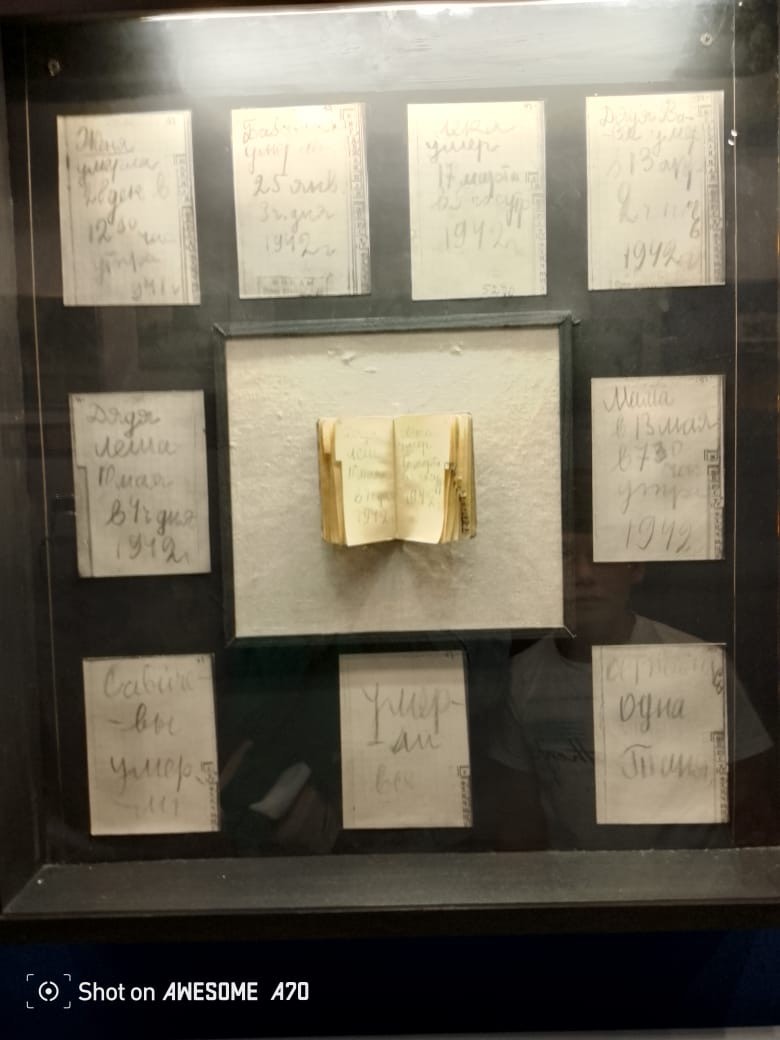 Женя
умерла
28 дек в
12 30 час
утра
1941 г
Бабушка
умерла
25 янв
3 ч дня
1942 г
Лека
умер
17 марта
в 5 час утр
1942 г
Дядя Ва-
-ся умер
в 13 апр
2 ч ноч
1942 г
Дядя
Леша
10 мая
в 4 ч дня
1942 г
Лека
умер
1942 г
Мама
в 13 мая
в 7 30 час
утра
1942
Савиче-
-вы
умер
-ли
умер-
-ли
все
осталась
одна
Таня
Shot on AWESOME A70